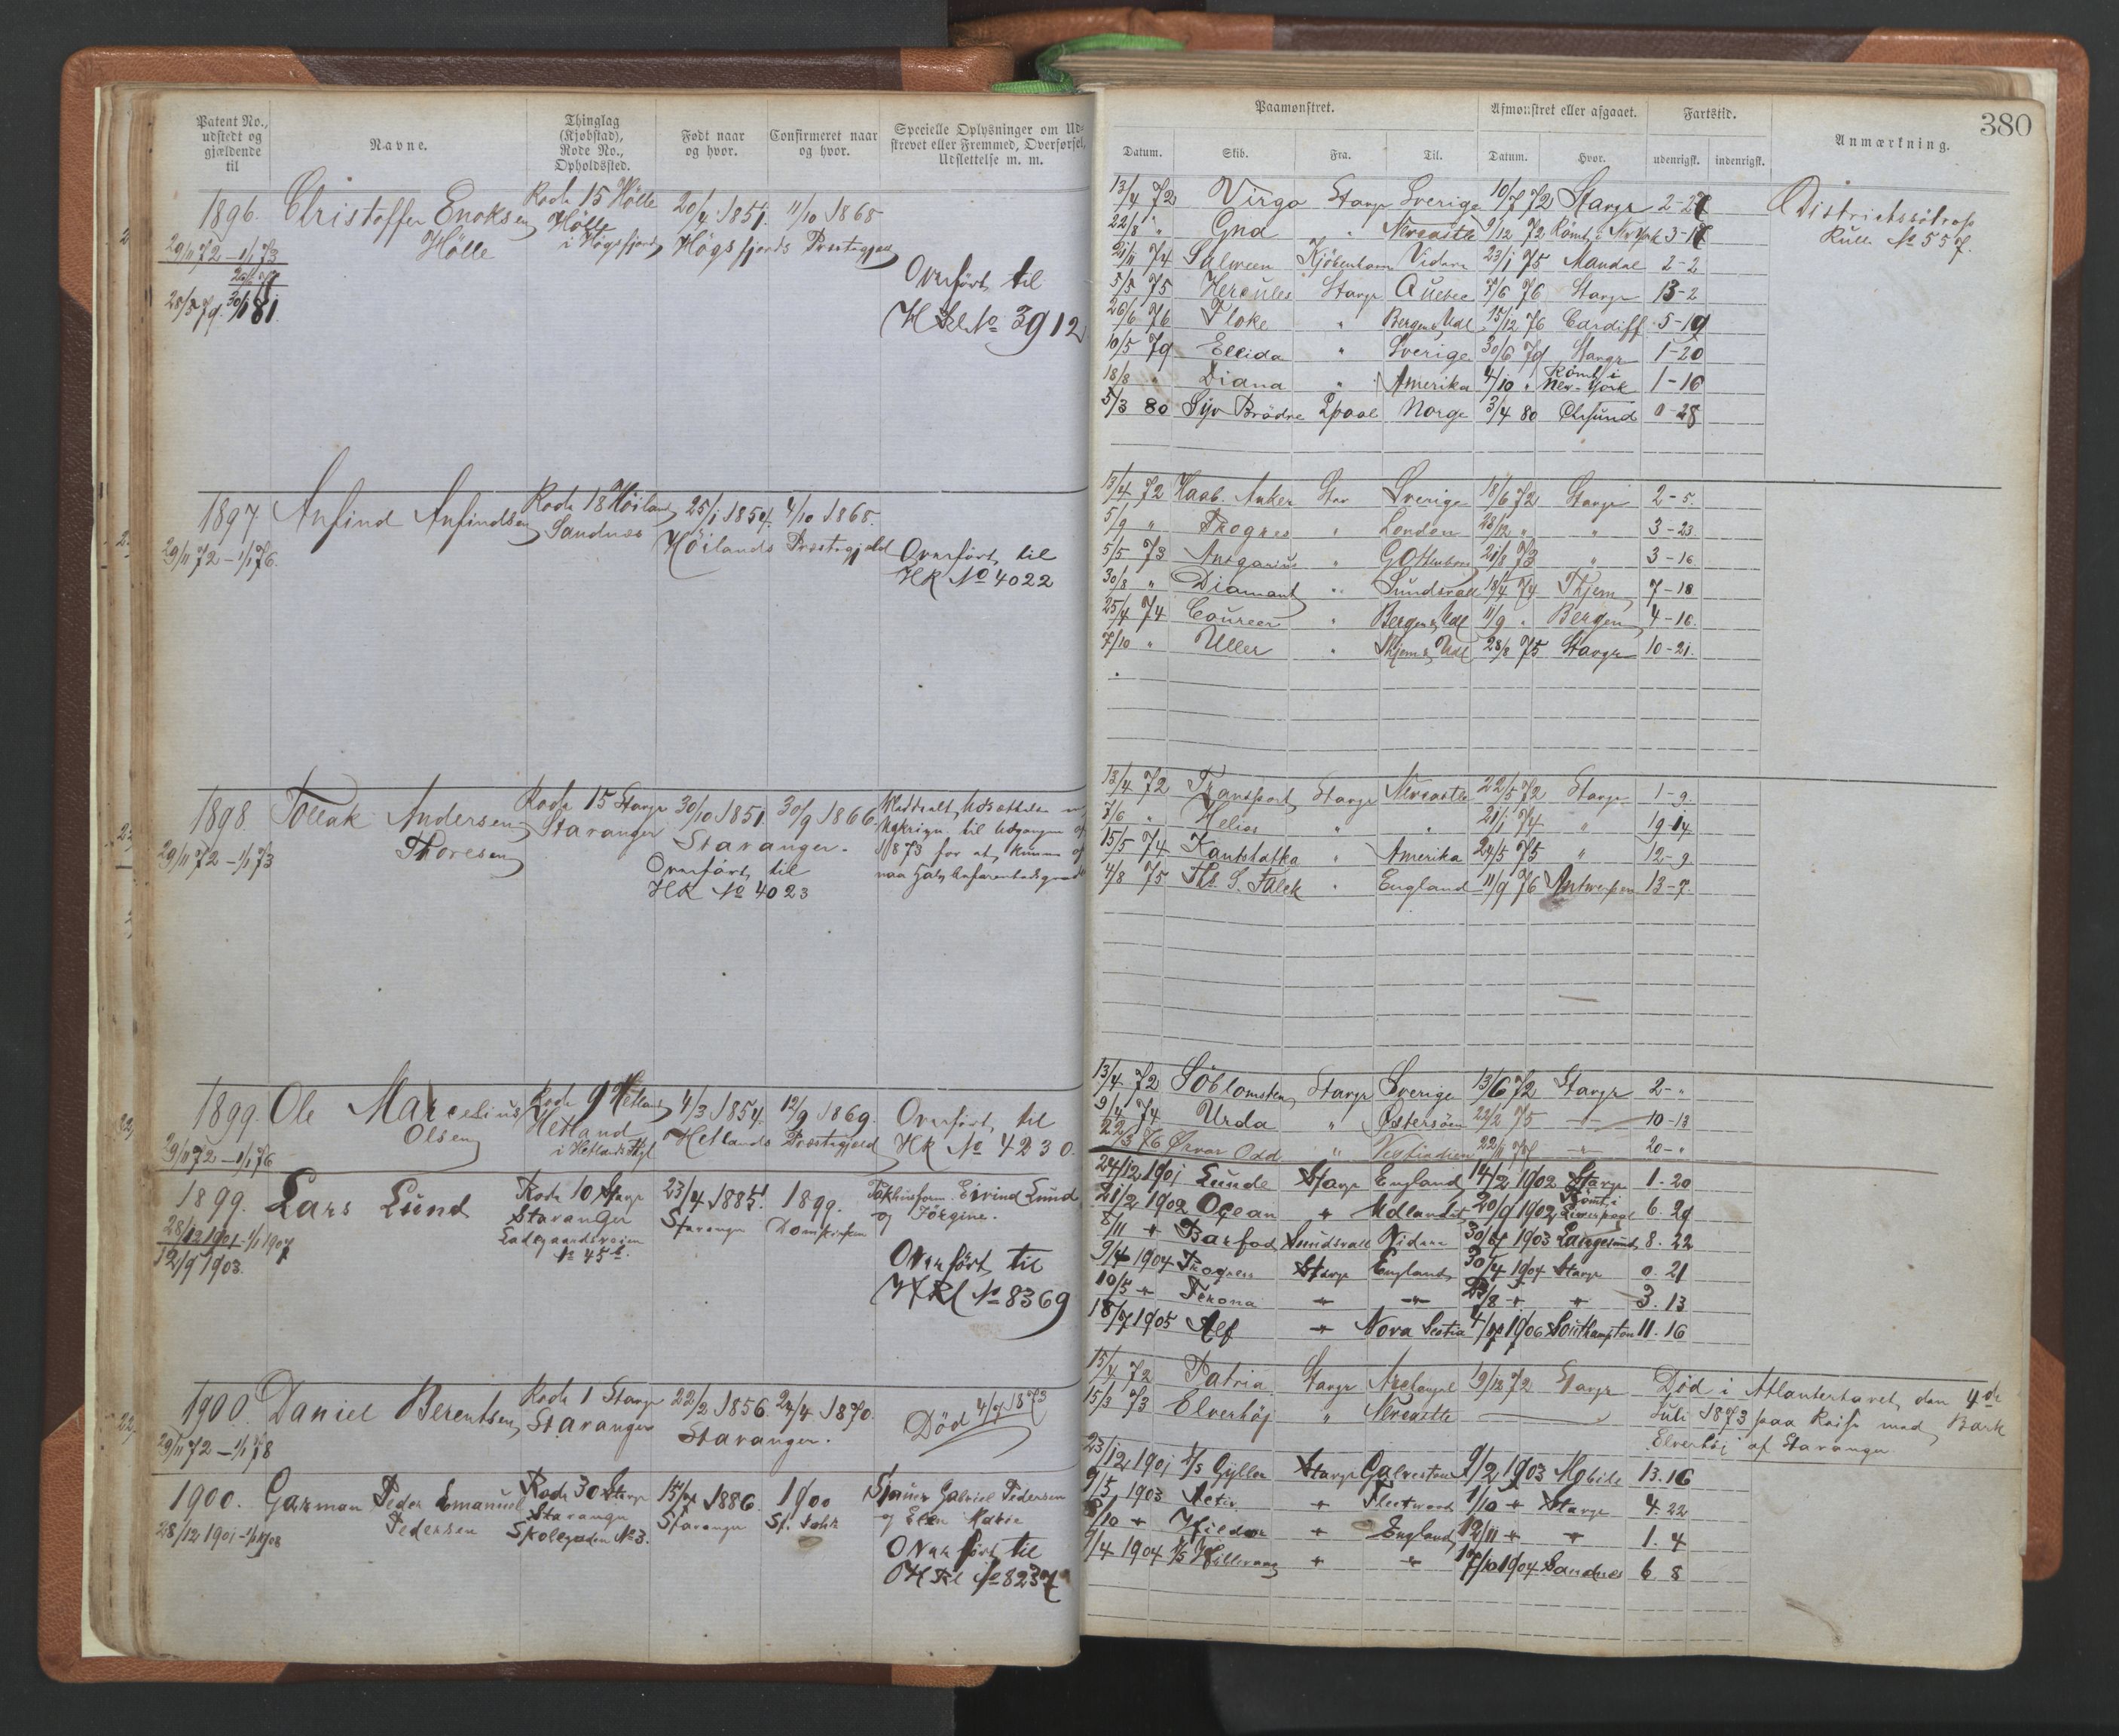 Patent No., udstedt og gjældende til
Navne.
Thinglag (Kjøbstad), Rode No., Opholdssted.
Født naar og hvor.
Confirmeret naar og hvor.
Specielle Oplysninger om Udstrevet eller Fremmed, Overførsel, Udslettelse m. m.
Paamønstret.
Afmønstret eller afgaaet.
Fartstid.
Anmærkning.
380
Datum. Skib. Fra. Til. Datum. Hvor. udenrigsk. indenrigsk.
1896. Christoffer Enoksen Rode 15 Hölle 20/4 1851. 11/10 1868
Hölle Hölle i Högsfjord Högsfjords Præstegjeld
29/11 72 – 1/1 73
28/3 79. 81.
Overført til
No 3912
13/4 72 Virgo Stavgr Sverige 10/7 72 Stavgr 2-27
22/8 " Gna " Newcastle 9/12 72 Römt i New York 3-17
21/11 74 Salween Kjöbenhavn Videre 23/1 75 Mandal 2-2
5/5 75 Hercules Stavgr Quebec 7/6 76 Stavgr 13-2
26/6 76 Floke " Bergen & Udl 15/12 76 Cardiff 5-19
10/5 79 Ellida " Sverige 30/6 79 Stavgr 1-20
18/8 " Diana " Amerika 4/10 " Römt i New-York 1-16
5/3 80 Syv Brödre Lpool Norge 3/4 80 0-28
Rulle No 557.
1897 Anfind Anfindsen Rode 18 Höiland 25/1 1854. 4/10 1868.
Sandnes Höilands Præstegjeld
29/11 72 – 1/1 76.
Overført til
HR No 4022
13/4 72 Haab. Anker Stav Sverige 18/6 72 Stavgr 2-5.
5/9 " " London 28/12 " " 3-23.
5/5 73 Ansgarius " Gottenborg 21/8 73 " 3-16
30/8 " Diamant " Sundsvall 18/4 74 Thjem 7-18
25/4 74 Coureer " Bergen & Udl 11/9 " Bergen 4-16.
7/10 " Uller " Thjem & Udl 28/8 75 Stavgr 10-21.
1898. Tollak Andersen Rode 15 Stavgr 30/10 1851. 30/9 1866.
Thoresen Stavanger Stavanger.
29/11 72 – 1/1 73
Meddealt Udsættelse
til Udgangen af
1873 for at kunne
Overført til
HR No 4023
13/4 72 Transport Stavgr Newcastle 22/5 72 Stavgr 1-9.
7/6 " Helios " " 21/1 74 " 19-14
15/5 74 Kamtstatka " Amerika 24/5 75 " 12-9
4/8 75 Ths. S. Falck " England 11/9 76 Antwerpen 13-7.
1899. Ole Marcelius Rode 9 Hetland 4/3 1854. 12/9 1869.
Olsen Hetland Hetlands Præstegjeld
29/11 72 – 1/1 76
Overført til
HR No 4230.
13/4 72 Söblomsten Stavgr Sverige 13/6 72 Stavgr 2-"
9/4 74 Urda " Østersöen 22/2 75 " 10-13
22/3 76 Ørvar Odd " Vestindien 20-"
1899. Lars Lund Rode 10 Stavgr 23/4 1885. 1899.
Stavanger Stavanger Domkirken
Ladegaardsveien
No 45
28/12 1901 – 1/1 1907
12/9 1903.
Eivind Lund
og Jörgine.
Overført til
No 8369
24/12 1901 Lunde Stavgr England 14/2 1902 Stavgr 1.20
21/2 1902 Ocean " Udlandet 20/9 1902 Römt i Liverpool 6.29
8/11 " Barfod Sundsvall Videre 1903 Langesund 8.22
9/4 1904 Stavgr England 30/4 1904 Stavgr 0.21
10/5 " Verona " " " " 3.13
18/7 1905 Alf " Nova Scotia 1906 Southampton 11.16
1900. Daniel Berentsen Rode 1 Stavgr 22/2 1856. 24/4 1870.
Stavanger Stavanger.
29/11 72 – 1/1 78
Död 4/7 1873
15/4 72 Patria Stavgr 19/12 72 Stavgr
15/3 73 Elverhöj " Newcastle
Död i Atlanterhavet den 4de
Juli 1873 paa Reise med Bark
Elverhöi af Stavanger
1900. Garman Peder Emanuel Rode 30 Stavgr 1886. 1900
Pedersen Stavanger Stavanger St. Petri
Skolegaden No 3.
28/12 1901 – 1/1 1908
Gabriel Pedersen
og Elen Marie
Overført til
No 8237
23/12 1901 Gyller Stavgr Galvestown 9/2 1903 Mobile 13.16
9/5 1903 Activ " Fleetwood 1/10 " Stavgr 4.22
8/10 " Hildor " England 12/11 " " 1.4
9/4 1904 Hillevaag " " 17/10 1904 Sandnes 6 8